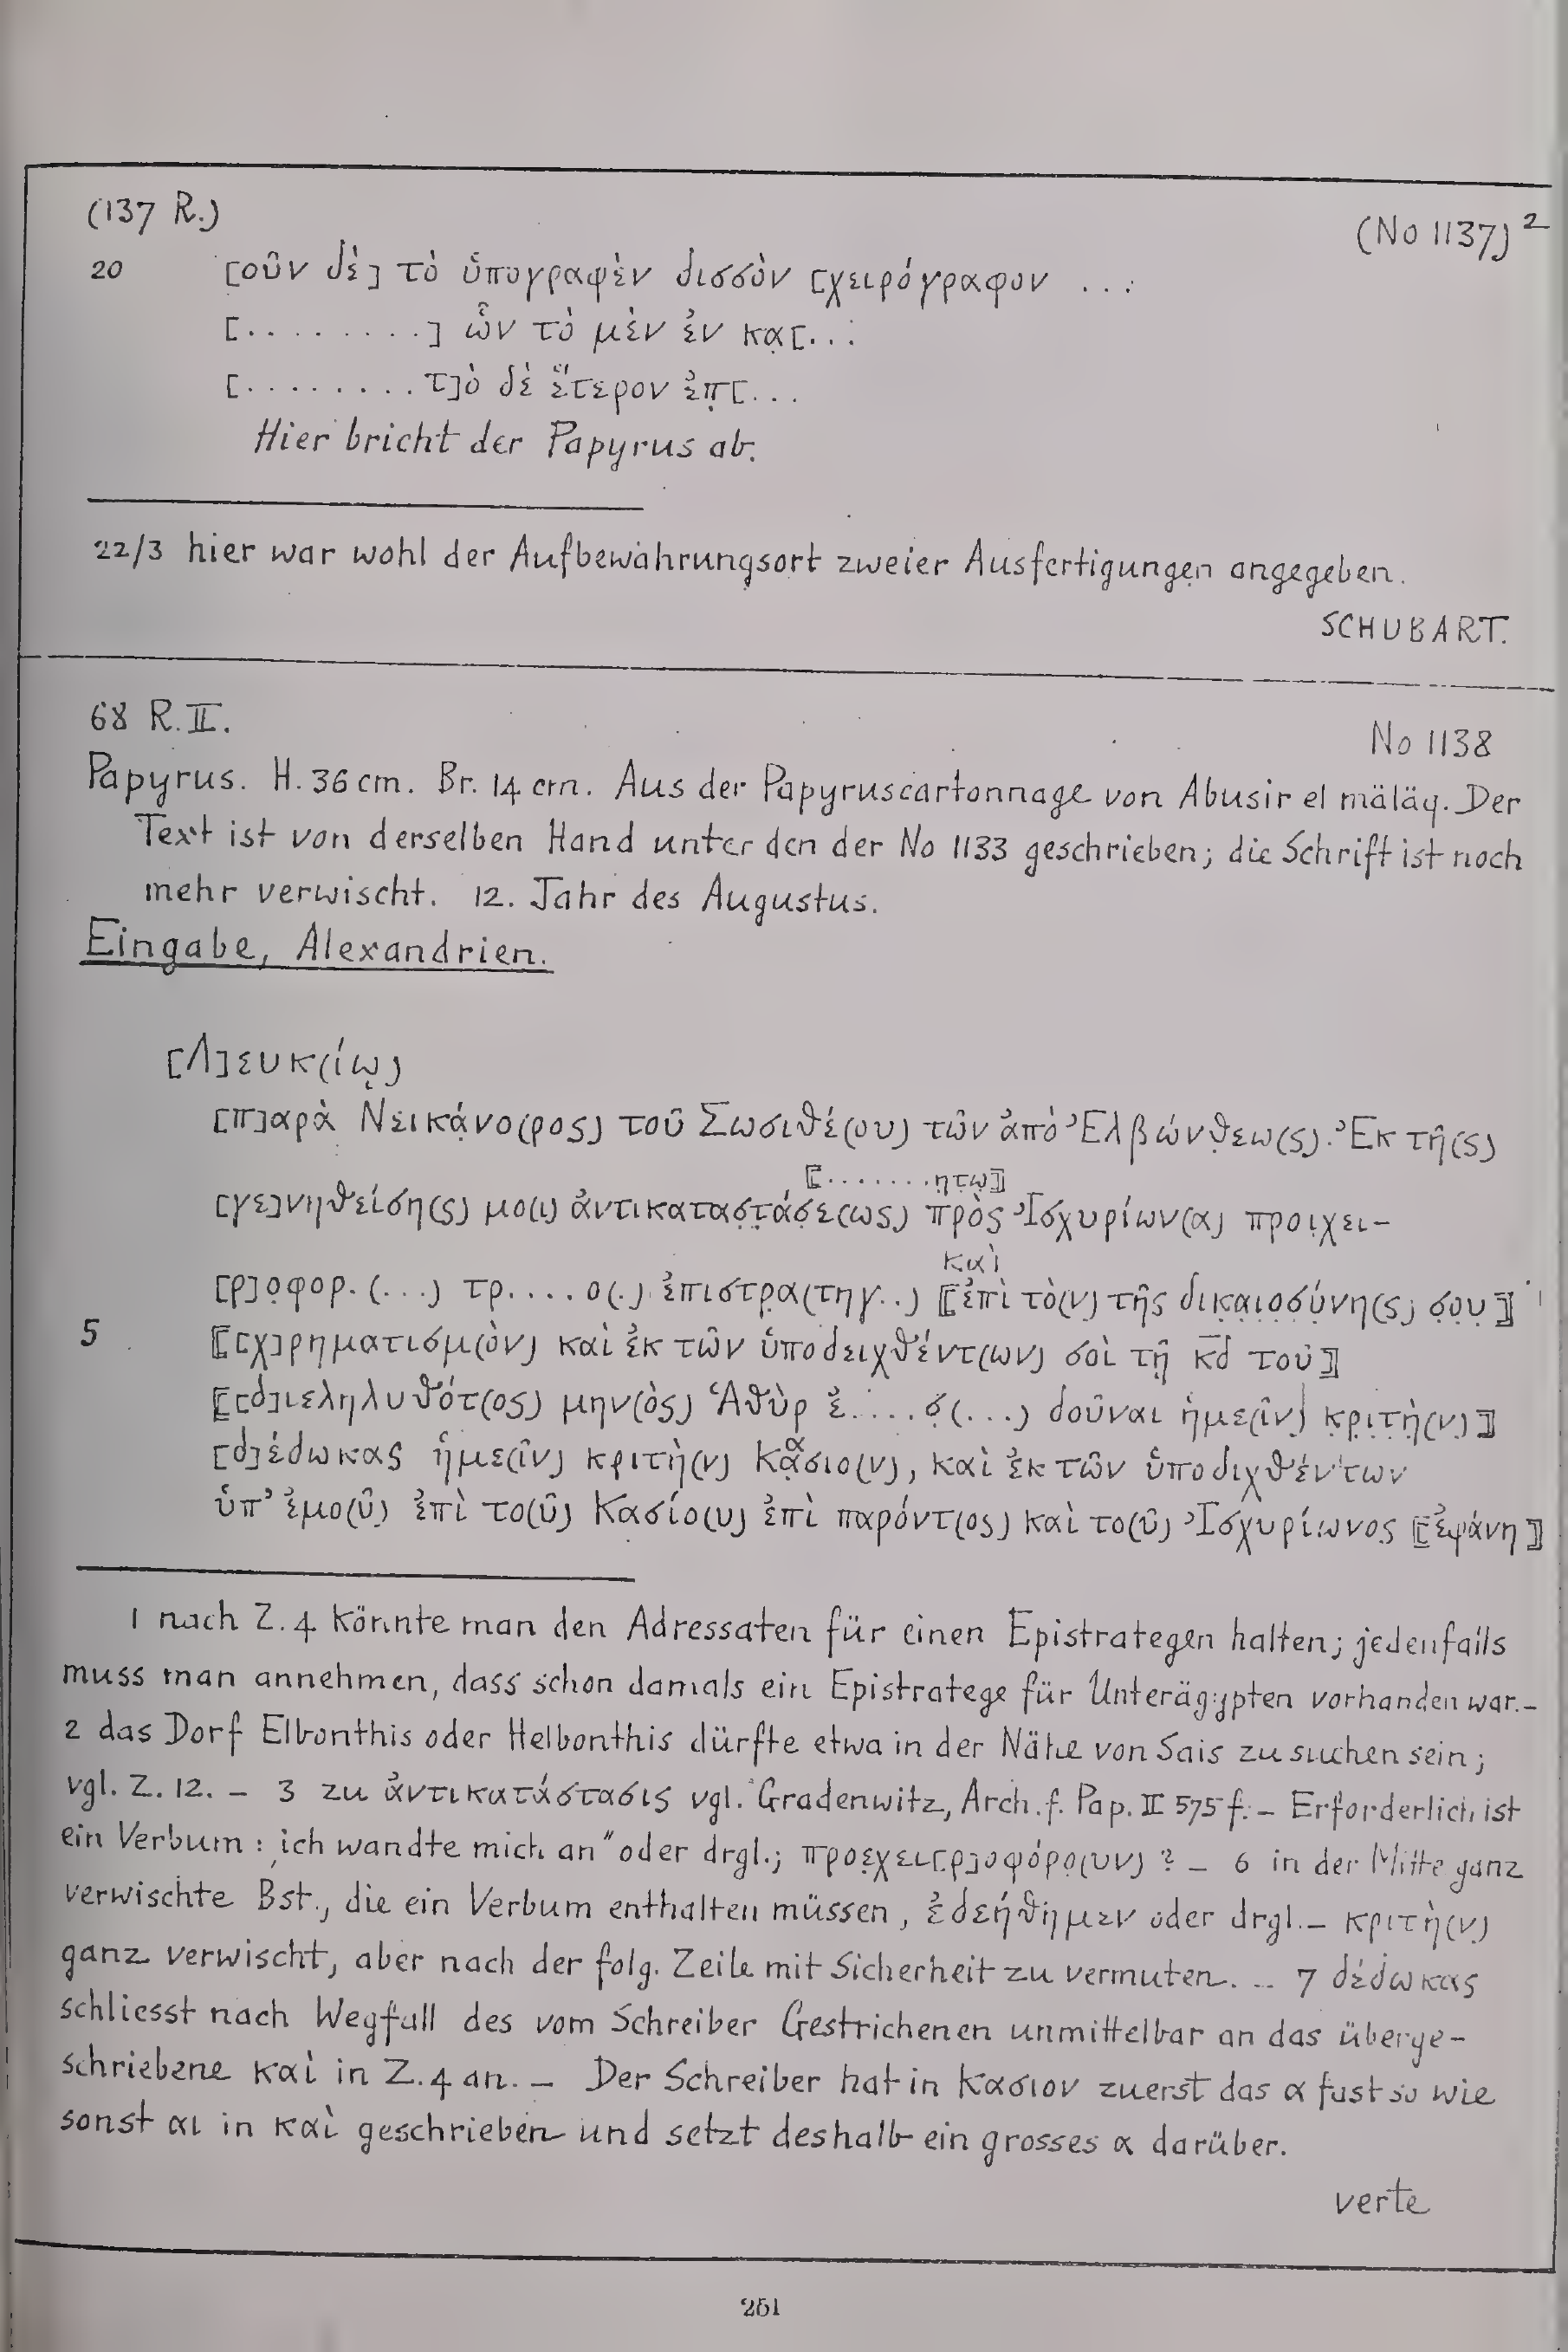 (137 R.) (No 1137)²
20 [οὖν δὲ] τὸ ὑπογραφὲν δισσὸν [χειρόγραφον ...
[.........] ὧν τὸ μὲν ἐν κα̣[...
[........τ]ὸ δὲ ἕτερον ἐπ̣[...
Hier bricht der Papyrus ab.
22/3 hier war wohl der Aufbewahrungsort zweier Ausfertigungen angegeben.
SCHUBART.
68 R. II. No 1138
Papyrus. H. 36 cm. Br. 14 cm. Aus der Papyruscartonnage von Abusir el mäläq. Der
Text ist von derselben Hand unter den der No 1133 geschrieben; die Schrift ist noch
mehr verwischt. 12. Jahr des Augustus.
Eingabe, Alexandrien.
[Λ]ευκ(ίῳ)
[π]αρὰ Νεικά̣νο(ρος) τοῦ Σωσιθέ(ου) τῶν ἀπὸ Ἐλβώνθ̣εω(ς). Ἐκ τῆ(ς)
⟦.......η̣τω̣⟧
[γε]νηθείση(ς) μο(ι) ἀντικατασ̣τ̣ά̣σ̣ε(ως) πρὸς Ἰσχυρίων(α) προι̣χει-
καὶ
[ρ]ο̣φορ. (...) τρ.... ο(.) ἐπιστρ̣α(τηγ..) ⟦ἐπὶ τὸ(ν) τῆς δικ̣α̣ι̣ο̣σ̣ύ̣νη(ς) σ̣ο̣υ̣⟧
5 ⟦[χ]ρηματισμ(ὸν) καὶ ἐκ τῶν ὑποδειχθέντ(ων) σοὶ τῇ κ̅δ̅ τοῦ⟧
⟦[δ]ιεληλυθότ(ος) μην(ὸς) Ἁθὺρ ἐ.....σ̣(...) δοῦναι ἡμε(ῖν) κ̣ρ̣ι̣τ̣ὴ̣(ν)⟧
[δ]έδωκας ἡμε(ῖν) κριτὴ(ν) Κα̣σιο(ν), καὶ ἐκ τῶν ὑποδιχθέντων
ὑπ' ἐμο(ῦ) ἐπὶ το(ῦ) Κασίο(υ) ἐπὶ παρόντ(ος) καὶ το(ῦ) Ἰσχυρίωνος̣ ⟦ἐφάνη⟧
1 nach Z. 4 könnte man den Adressaten für einen Epistrategen halten; jedenfalls
muss man annehmen, dass schon damals ein Epistratege für Unterägypten vorhanden war. –
2 das Dorf Elbonthis oder Helbonthis dürfte etwa in der Nähe von Sais zu suchen sein;
vgl. Z. 12. – 3 zu ἀντικατάστασις vgl. Gradenwitz, Arch. f. Pap. II 575 f. – Erforderlich ist
ein Verbum: „ich wandte mich an" oder drgl.; προε̣χει[ρ]οφόρο̣(υν)? – 6 in der Mitte ganz
verwischte Bst., die ein Verbum enthalten müssen, ἐδεήθημεν oder drgl. – κριτὴ(ν)
ganz verwischt, aber nach der folg. Zeile mit Sicherheit zu vermuten. – 7 δέδωκας
schliesst nach Wegfall des vom Schreiber Gestrichenen unmittelbar an das überge-
schriebene καὶ in Z. 4 an. – Der Schreiber hat in κασιον zuerst das α fast so wie
sonst αι in καὶ geschrieben und setzt deshalb ein grosses α darüber.
verte
251